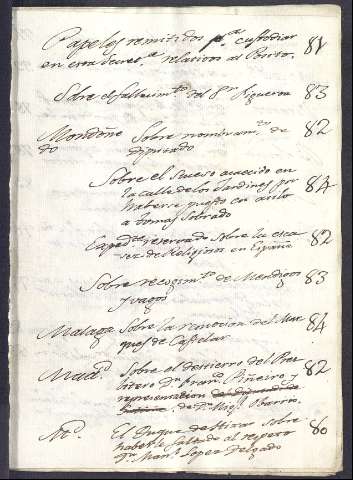 Papeles remitidos p.ª custodiar 81
en esta secret.ª relacion al Porto.
Sobre el fallecim.to del S.r Figueroa 83
Mondoñe Sobre nombram.to de 82
do diputado
Sobre el suceso acaecido en
la calle de los Jardines por 84
haberse puesto en asilo
a Tomas Sobrado
Exped.te reservado sobre la esca 82
sez de Religiosos en España
Sobre recogim.to de Mendigos 83
y vagos
Malaga Sobre la remocion del Mar 84
ques de Castelar
Mad.d Sobre el destierro del Pres 82
bitero D.n Fran.co Piñeiro y
representacion
de D.n Mig.l Ibarra.
M.d El Duque de Hixar sobre 80
haberle faltado al respeto
D.n Man.l Lopez Delgado